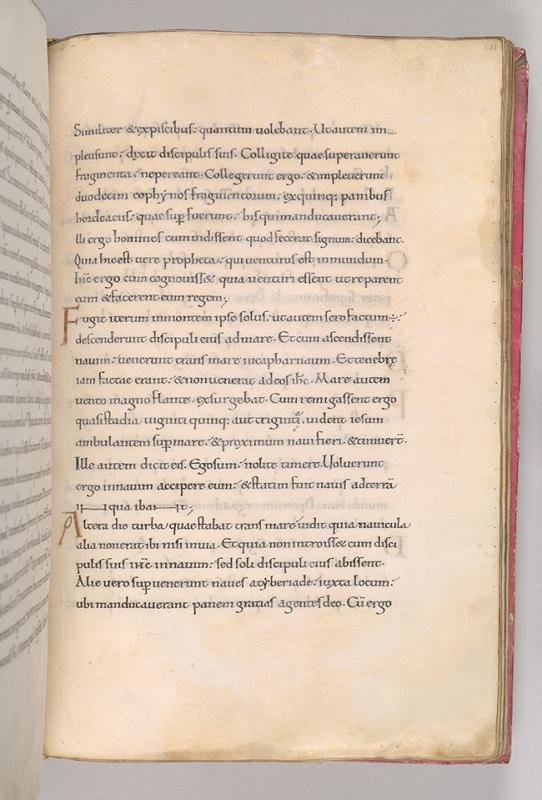 Similiter & expiscibus: quantum uolebant. Utautem im
pleasunt: dixit discipulis suis. Colligite quae superauerunt
fragmenta: nepereant. Collegerunt ergo. & impleuerunt
duodecim cophynos fragmentorum: exquinq; panibus
hordeaceis: quae sup fuerunt: his qui manducauerant;
Illi ergo homines cum uidissent quod fecerat signum: dicebant.
Quia hic est uere propheta: qui uenturus est inmundum.
ihc ergo cum cognouiss& quia uenturi essent ut reparent
eum & facerent eum regem;
Fugit iterum inmontem ipse solus. ut autem sero factum÷:
descenderunt discipuli eius ad mare. Et cum ascendissent
nauim: uenerunt trans mare incapharnaum. Et tenebrę
iam factae erant: & non uenerat ad eos ihc. Mare autem
uento magno flante. exsurgebat. Cum remigassent ergo
quasi stadia uiginti quinq; aut triginta. uident iesum
ambulantem sup mare: & proximum naui fieri. & timuert.
Ille autem dicit eis. Ego sum: nolite timere. Uoluerunt
ergo innauim accipere eum: & statim fuit nauis ad terrā
quā ibat;
Altera die turba quae stabat trans mare: uidit quia nauicula
alia non erat ibi nisi una. Et quia non introiss& cum disci
pulis suis ihc innauim: sed soli discipuli eius abissent.
Alie uero sup uenerunt naues atyberiade: iuxta locum:
ubi manducauerant panem gratias agentes deo. Cū ergo